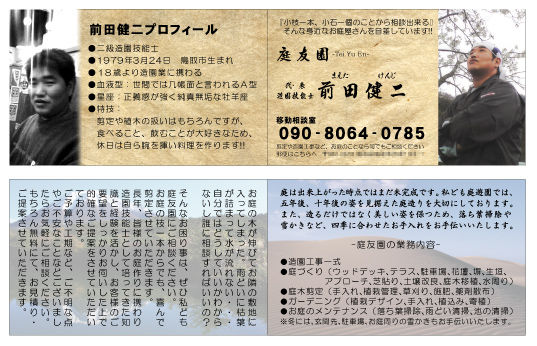 前田健二プロフィール
●二級造園技能士
●1979年3月24日 鳥取市生まれ
●18歳より造園業に携わる
●血液型:世間では几帳面と言われるA型
●星座:正義感が強く純真無垢な牡羊座
●特技:
剪定や植木の扱いはもちろんですが、
食べること、飲むことが大好きなため、
休日は自ら腕を揮い料理を作ります!!
『小枝一本、小石一個のことから相談出来る』
そんな身近なお庭屋さんを自荐しています!!
庭友園 -Tei Yu En-
代表
造園技能士
まえた けんじ
前田健二
移動相談室
090-8064-0785
剪定や造園工事など、お庭のことなら何でもご相談ください
郵便はこちらへ
お庭の木が伸びてお隣の敷地に
入ってしまった・雨どいに枯葉
が詰まって水が流れない・・
自分ではどうしていいかわから
ないし誰に相談すればいいの?
そんなお困り事は、ぜひ私ども
庭友園にご相談ください。
お庭の枝一本からでも、喜んで
剪定させていただきます。
長年、皆様のお庭作りに携わり
造園技能士として培ってきた知
識と経験を活かし、お客様のご
要望をしっかりお伺いした上で
的確なご提案をさせていただい
ております。
ご予算や工期など、ご不明な点
やご不安な点がございましたら
たらお気軽にご相談ください。
もちろん無料にて、お見積り・
ご提案させていただきます。
庭は出来上がった時点ではまだ未完成です。私ども庭遊園では、
五年後、十年後の姿を見据えた庭造りを大切にしております。
また、造るだけではなく美しい姿を保つため、落ち葉掃除や
雪かきなど、四季に合わせたお手入れをお手伝いいたします。
-庭友園の業務内容-
●造園工事一式
●庭づくり(ウッドデッキ、テラス、駐車場、花壇、塀、生垣、
アプローチ、芝貼り、土壌改良、庭木移植、水周り)
●庭木剪定(手入れ、植栽管理、草刈り、施肥、薬剤散布)
●ガーデニング(植栽デザイン、手入れ、植込み、寄植)
●お庭のメンテナンス(落ち葉掃除、雨どい清掃、池の清掃)
※冬には、玄関先、駐車場、お庭周りの雪かきもお手伝いいたします。